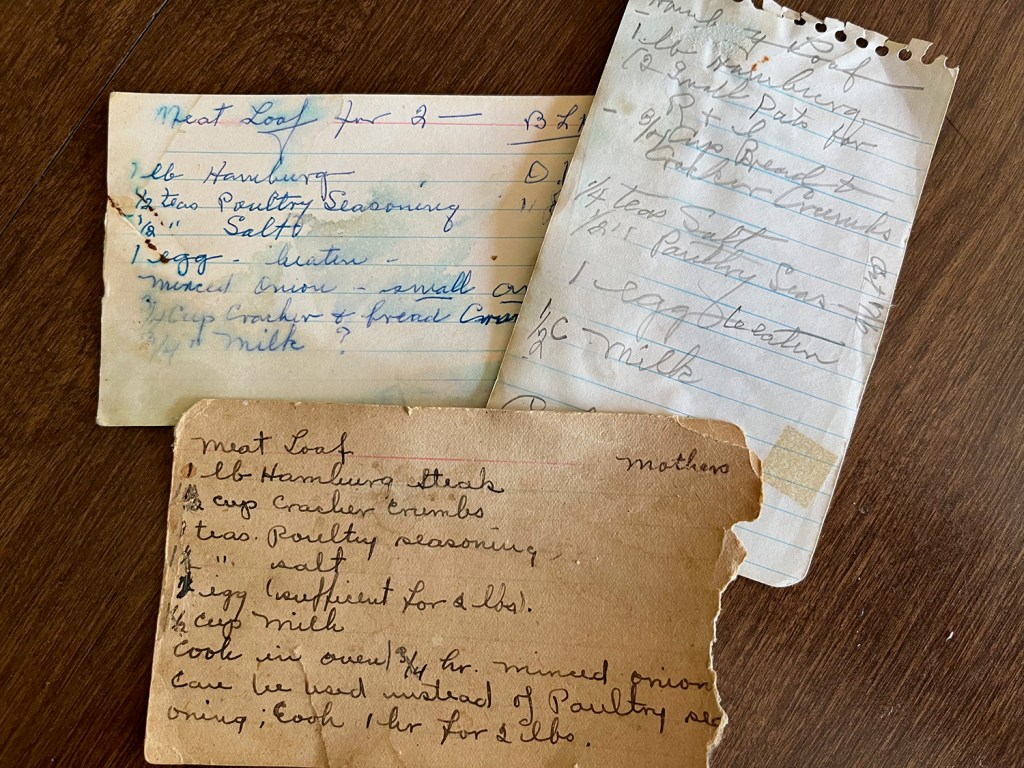 Meat Loaf for 2 — B L
1 lb Hamburg
1/2 teas Poultry Seasoning
1/2 " Salt
1 egg - beaten -
minced onion - small
1/2 cup Cracker & bread
3/4 " Milk ?
Loaf
1 lb Hamburg
(2 Small Pats for
Cup Bread &
Cracker Crumbs
1/4 teas Salt
1/2 " Poultry Seas—
1 egg beaten
1/2 C - Milk
Meat Loaf Mothers
1 lb Hamburg Steak
1/2 cup Cracker Crumbs
1 teas. Poultry seasoning
" salt
1 egg (sufficient for 2 lbs).
1/2 cup Milk
Cook in oven 3/4 hr. minced onion
can be used instead of Poultry sea
oning; Cook 1 hr for 2 lbs.